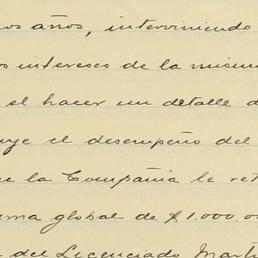 os años, interviniendo
os intereses de la misma
el hacer un detalle d
uye el desempeño del
ue la Compañia le ret
uma global de $1.000.00
del Licenciado Mart